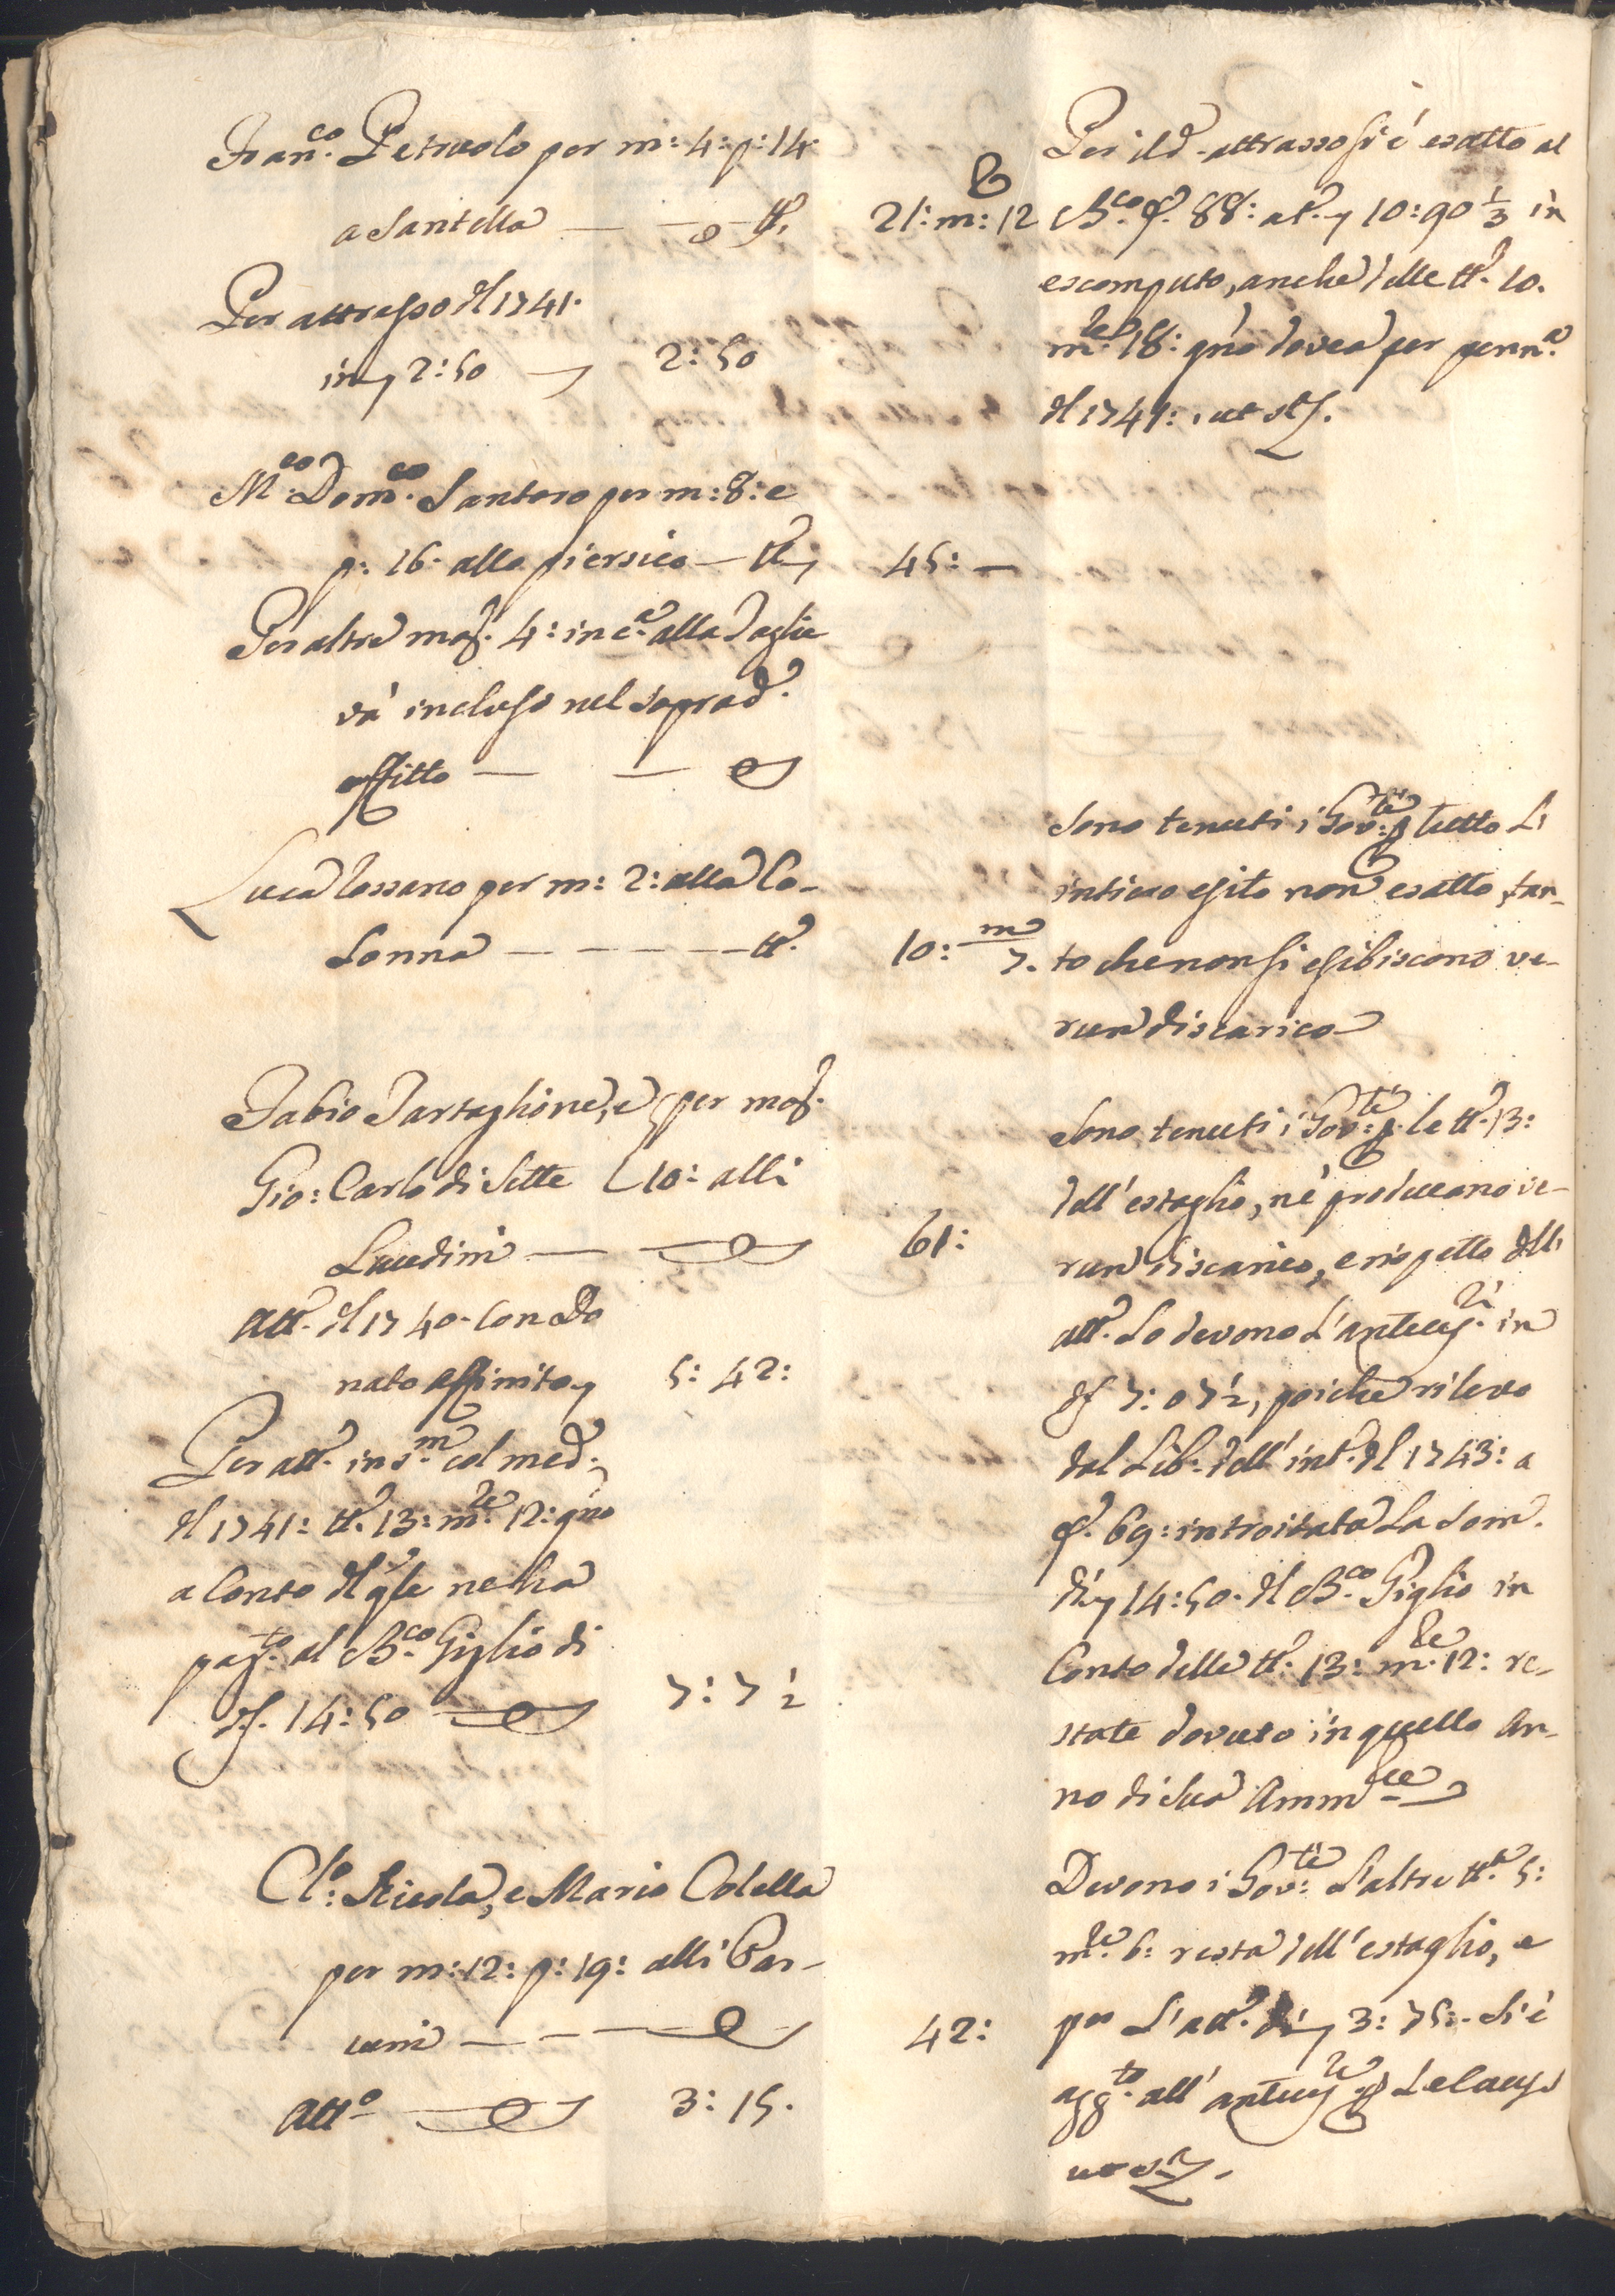 Fran.co Petruolo per m: 4: p: 14
a Santella — tt.
21: m: 12
Per attrasso dl 1741.
in 2:50 — 2:50
M.co Dom.co Santoro per m: 8: e
p: 16. allo piersico — tt.
45: —
Per altre mog. 4: in c.a alla Taglia
và incluso nel soprad.
affitto —
Luca Cossano per m: 2: alla Co-
lonna — — — — tt.
10: m 7.
Fabio Tartaglione, e per mog.
Gio: Carlo di Sette 10: alli
Laudini —
61:
Att. dl 1740. con Do
nato Affinito 5: 42:
Per att. ins.m col med.
dl 1741: tt. 13: m.e 12: qno
a conto dl qle ne ha
pag.to al B.co Giglio di
df. 14:50 7: 7 1/2
Cl.o: Nicola, e Mario Colella
per m: 12: p: 19: alli Par-
uni — — —
42:
Att.o 3: 15.
Per il d. attrasso si è esatto al
B.co f. 88: at. 10:90 1/3 in
escomputo, anche delle tt. 10.
m.e 18: qno dovea per genn.o
dl 1741: ut s.a
Sono tenuti i Gov.ti p tutto L'
intiero esito non esatto, tan-
to che non si esibiscono ve-
run discarico
Sono tenuti i Gov.ti p. le tt. 13:
dell' estaglio, nè producano ve-
run discarico, e rispetto dell'
att. lo devono L'antecess.ri in
df 7: 07 1/2, poiche rilevo
dal Lib. dell' int. dl 1743: a
f. 69: introitata la som.
di 14:50. dl B.co Giglio in
Conto delle tt. 13: m.e 12: re-
state dovuto in quello An-
no di sua Amm.ne
Devono i Gov.ti l'altre tt. 5:
m.e 6: resta dell' estaglio, e
per L'att. di 3: 75:. Si è
agg.to all' antecess.re p le caus.
ut s.a